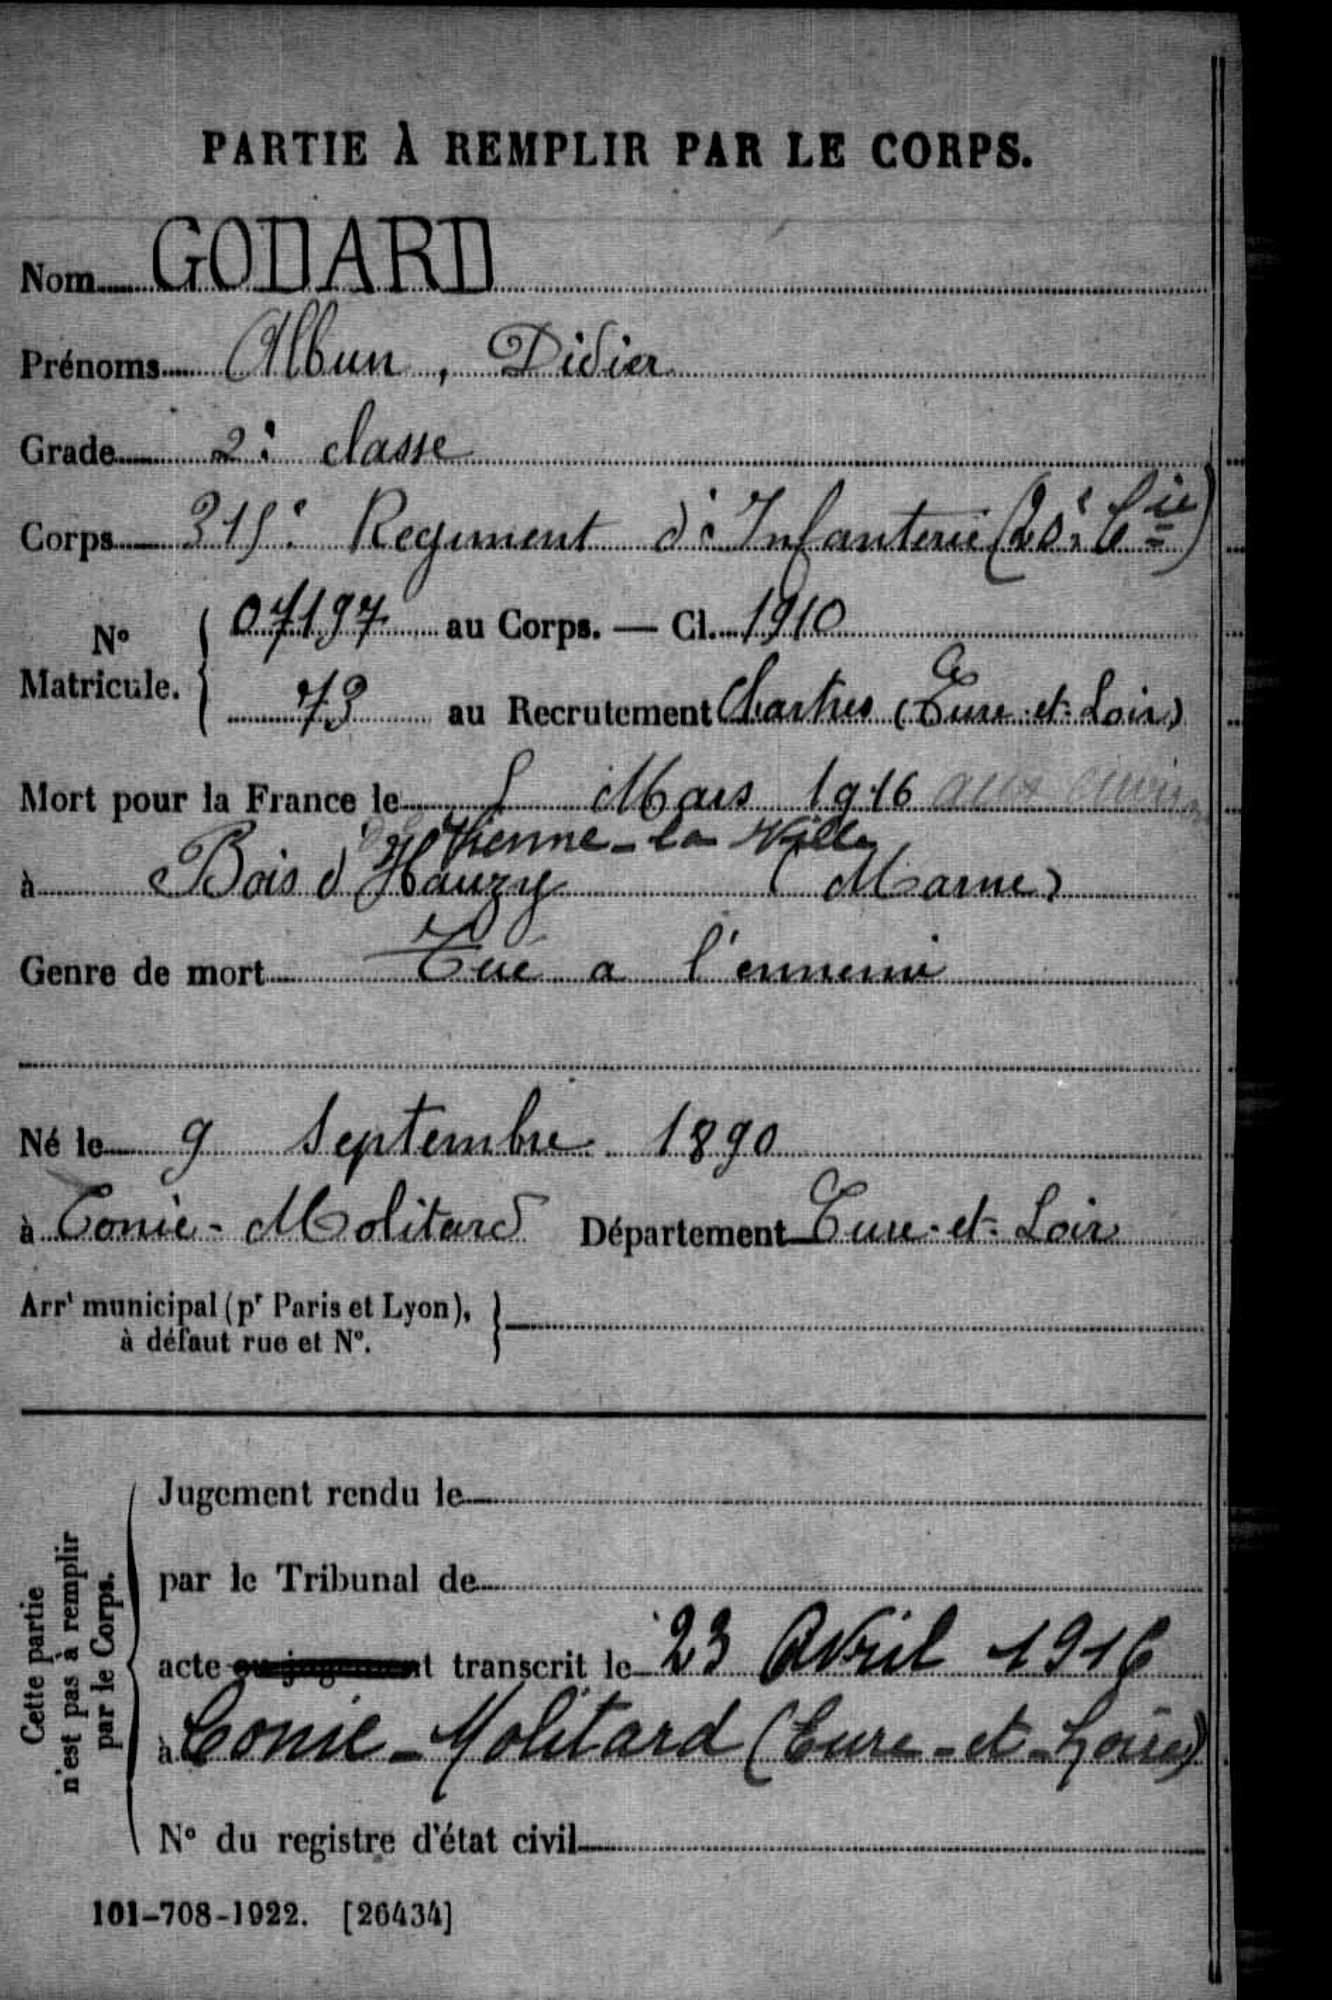 PARTIE À REMPLIR PAR LE CORPS.
Nom GODARD
Prénoms Albun, Didier
Grade 2e classe
Corps 315e Regiment d'Infanterie (20e Cie)
No Matricule. 07197 au Corps. — Cl. 1910
73 au Recrutement Chartres (Eure-et-Loir)
Mort pour la France le 5 Mars 1916 aux
Vienne-la Ville
à Bois d'Hauzy (Marne)
Genre de mort Tué a l'ennemi
Né le 9 Septembre 1890
à Conie-Molitard Département Eure-et-Loir
Arrt municipal (pr Paris et Lyon),
à défaut rue et No.
Cette partie
n'est pas à remplir
par le Corps.
Jugement rendu le
par le Tribunal de
acte ou jugement transcrit le 23 Avril 1916
à Conie-Molitard (Eure-et-Loire)
No du registre d'état civil
101-708-1922. [26434]